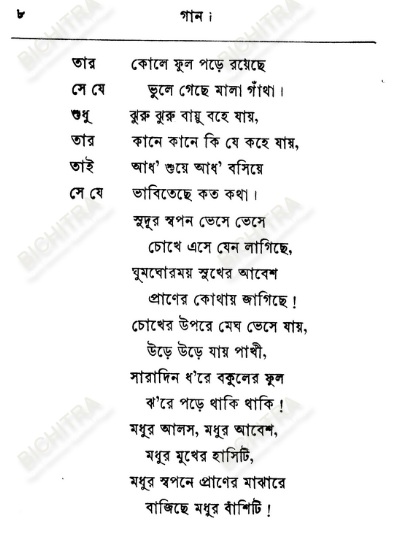 ৮ গান।
তার কোলে ফুল পড়ে রয়েছে
সে যে ভুলে গেছে মালা গাঁথা।
শুধু ঝুরু ঝুরু বায়ু বহে যায়,
তার কানে কানে কি যে কহে যায়,
তাই আধ' শুয়ে আধ' বসিয়ে
সে যে ভাবিতেছে কত কথা।
সুদূর স্বপন ভেসে ভেসে
চোখে এসে যেন লাগিছে,
ঘুমঘোরময় সুখের আবেশ
প্রাণের কোথায় জাগিছে!
চোখের উপরে মেঘ ভেসে যায়,
উড়ে উড়ে যায় পাখী,
সারাদিন ধ'রে বকুলের ফুল
ঝ'রে পড়ে থাকি থাকি!
মধুর আলস, মধুর আবেশ,
মধুর মুখের হাসিটি,
মধুর স্বপনে প্রাণের মাঝারে
বাজিছে মধুর বাঁশিটি!
BICHITRA
BICHITRA
BICHITRA
BICHITRA
BICHITRA
BICHITRA